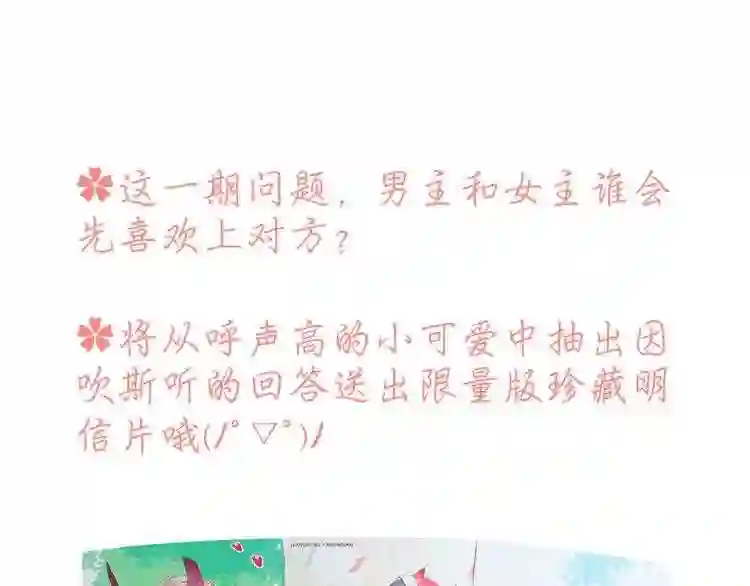 ✿这一期问题，男主和女主谁会
先喜欢上对方？
✿将从呼声高的小可爱中抽出因
吹斯听的回答送出限量版珍藏明
信片哦(/°▽°)/